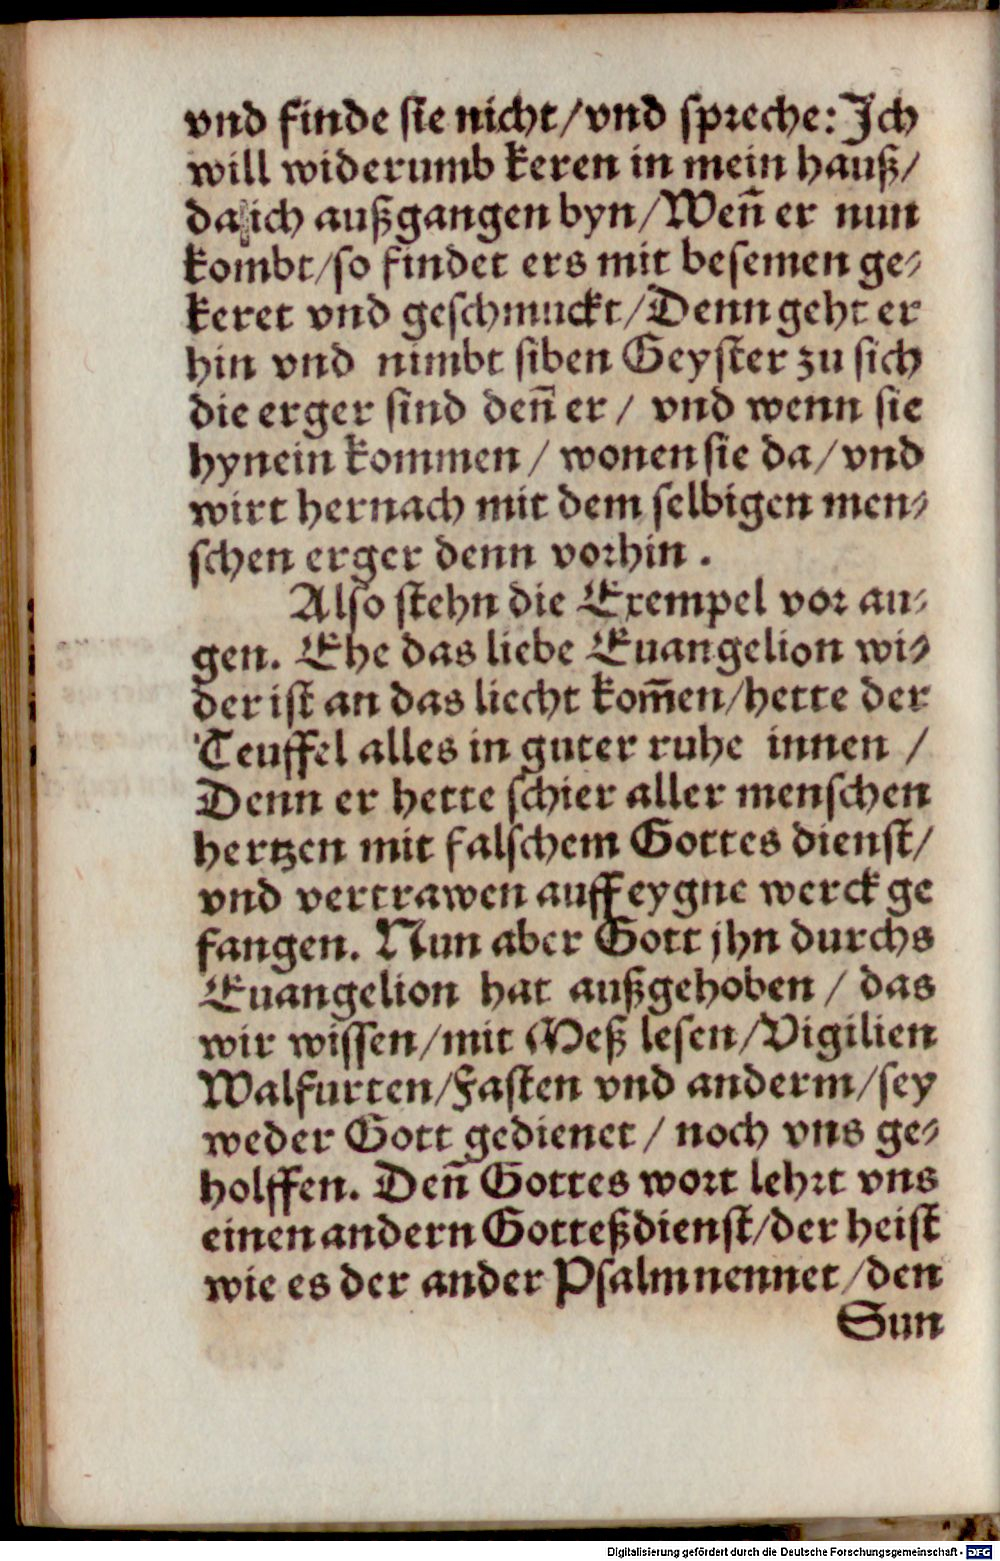 vnd finde sie nicht/vnd spreche: Jch
will widerumb keren in mein hauß/
da ich außgangen byn/Weñ er nun
kombt/so findet ers mit besemen ge⸗
keret vnd geschmuckt/Denn geht er
hin vnd nimbt siben Geyster zu sich
die erger sind deñ er / vnd wenn sie
hynein kommen / wonen sie da/vnd
wirt hernach mit dem selbigen men⸗
schen erger denn vorhin .
Also stehn die Exempel vor au⸗
gen. Ehe das liebe Euangelion wi⸗
der ist an das liecht kom̃en/hette der
Teuffel alles in guter ruhe innen /
Denn er hette schier aller menschen
hertzen mit falschem Gottes dienst/
vnd vertrawen auff eygne werck ge
fangen. Nun aber Gott jhn durchs
Euangelion hat außgehoben / das
wir wissen/mit Meß lesen/Vigilien
Walfurten/Fasten vnd anderm/sey
weder Gott gedienet / noch vns ge⸗
holffen. Deñ Gottes wort lehrt vns
einen andern Gotteßdienst/der heist
wie es der ander Psalm nennet/den
Sun
Digitalisierung gefördert durch die Deutsche Forschungsgemeinschaft - DFG